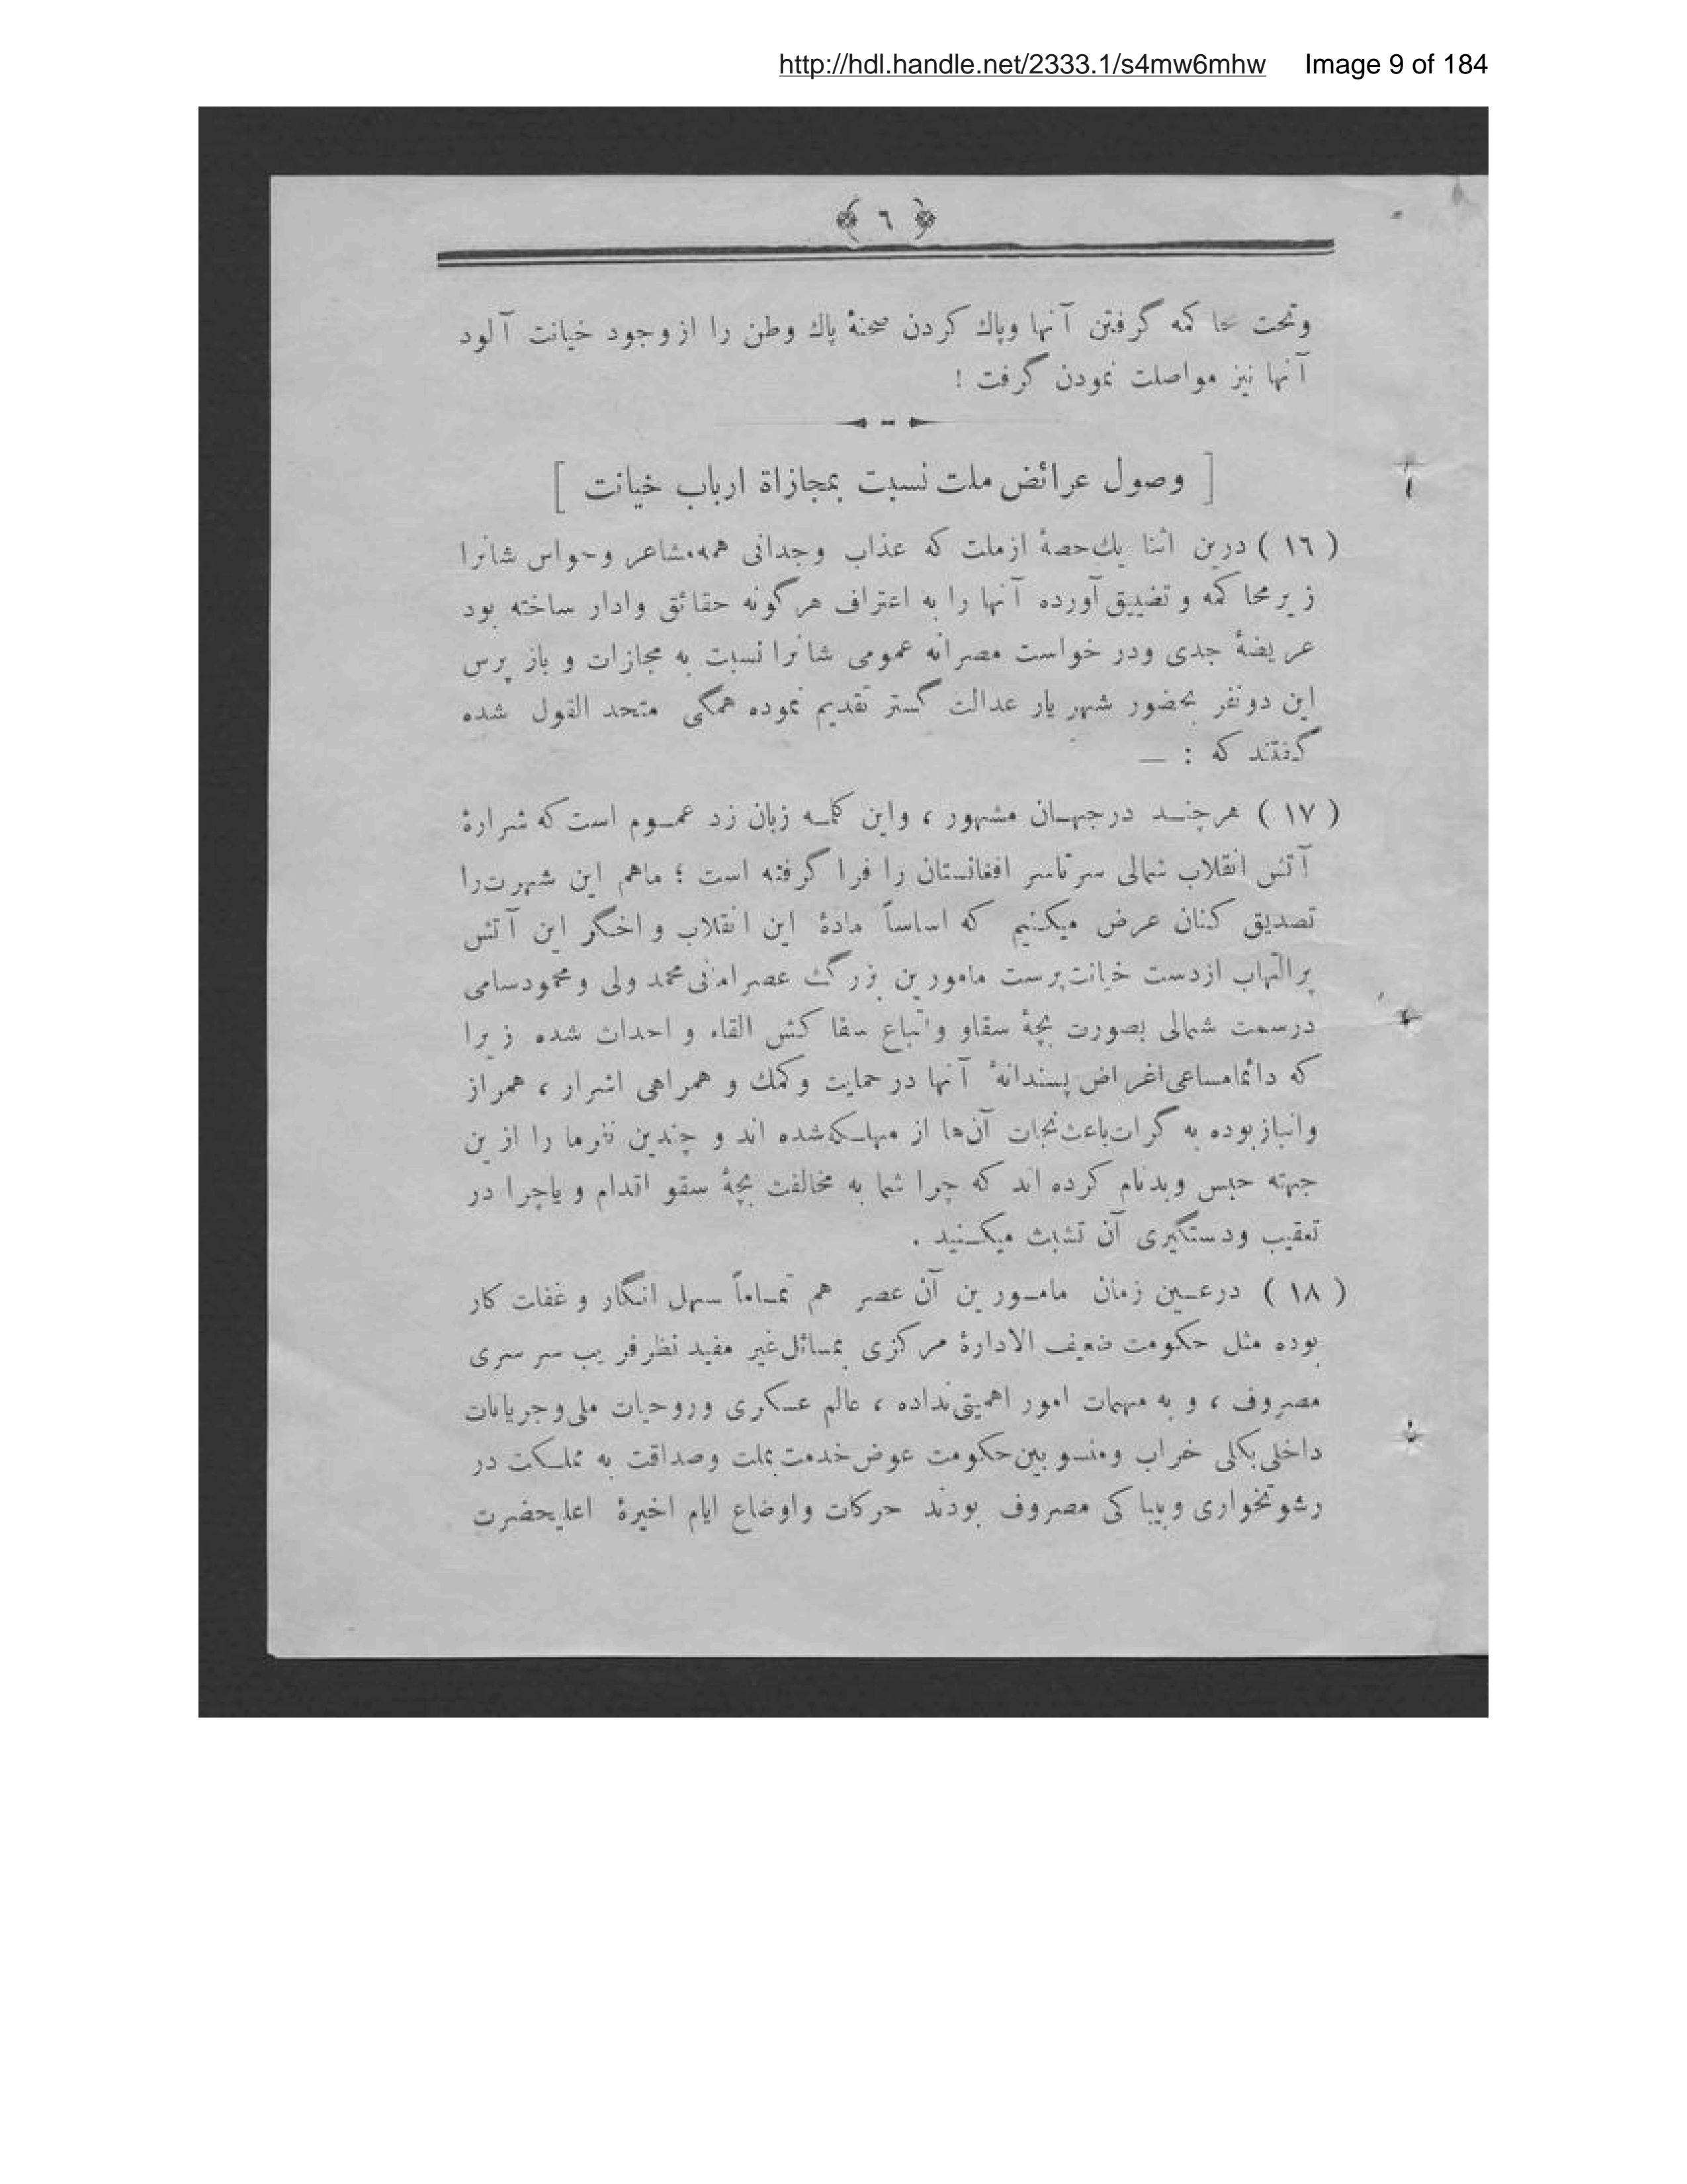 http://hdl.handle.net/2333.1/s4mw6mhw Image 9 of 184
﴿ ٦ ﴾
وتحت محاكمه گرفتن آنها وپاك كردن صحنۀ پاك وطن را از وجود خيانت آلود
آنها نيز مواصلت نمودن گرفت !
[ وصول عرائض ملت نسبت بمجازاة ارباب خيانت ]
( ١٦ ) درين اثنا يك حصۀ از ملت كه عذاب وجدانى همه مشاعر وحواس شانرا
زير محاكمه و تضييق آورده آنها را به اعتراف هرگونه حقائق وادار ساخته بود
عريضۀ جدى ودر خواست مصرانه عمومى شانرا نسبت به مجازات و باز پرس
اين دونفر بحضور شهريار عدالت گستر تقديم نموده همگى متحد القول شده
گفتند كه : —
( ١٧ ) هرچند درجهان مشهور ، واين كلمه زبان زد عموم است كه شرارۀ
آتش انقلاب شمالى سرتاسر افغانستان را فرا گرفته است ؛ ماهم اين شهرت را
تصديق كنان عرض ميكنيم كه اساساً مادۀ اين انقلاب و اخگر اين آتش
پر التهاب از دست خيانت پرست مامورين بزرگ عصر امانى محمد ولى و محمود سامى
درسمت شمالى بصورت بچۀ سقاو و اتباع سفاكش القاء و احداث شده زيرا
كه دائما مساعى اغراض پسندانۀ آنها در حمايت وكمك و همراهى اشرار ، همراز
وانباز بوده به كرات باعث نجات آن‌ها از مهلكه شده اند و چندين نفر ما را ازين
جهته حبس وبدنام كرده اند كه چرا شما به مخالفت بچۀ سقو اقدام و ياچرا در
تعقيب ودستگيرى آن تشبث ميكنيد .
( ١٨ ) درعين زمان مامورين آن عصر هم تماماً سهل انگار و غفلت كار
بوده مثل حكومت ضعيف الادارۀ مركزى بمسائل غير مفيد نظر فريب سرسرى
مصروف ، و به مهمات امور اهميتى نداده ، عالم عسكرى وروحيات ملى و جريانات
داخلى بكلى خراب ومنسوبين حكومت عوض خدمت بملت وصداقت به مملكت در
رشوتخوارى وبيباكى مصروف بودند حركات واوضاع ايام اخيرۀ اعليحضرت